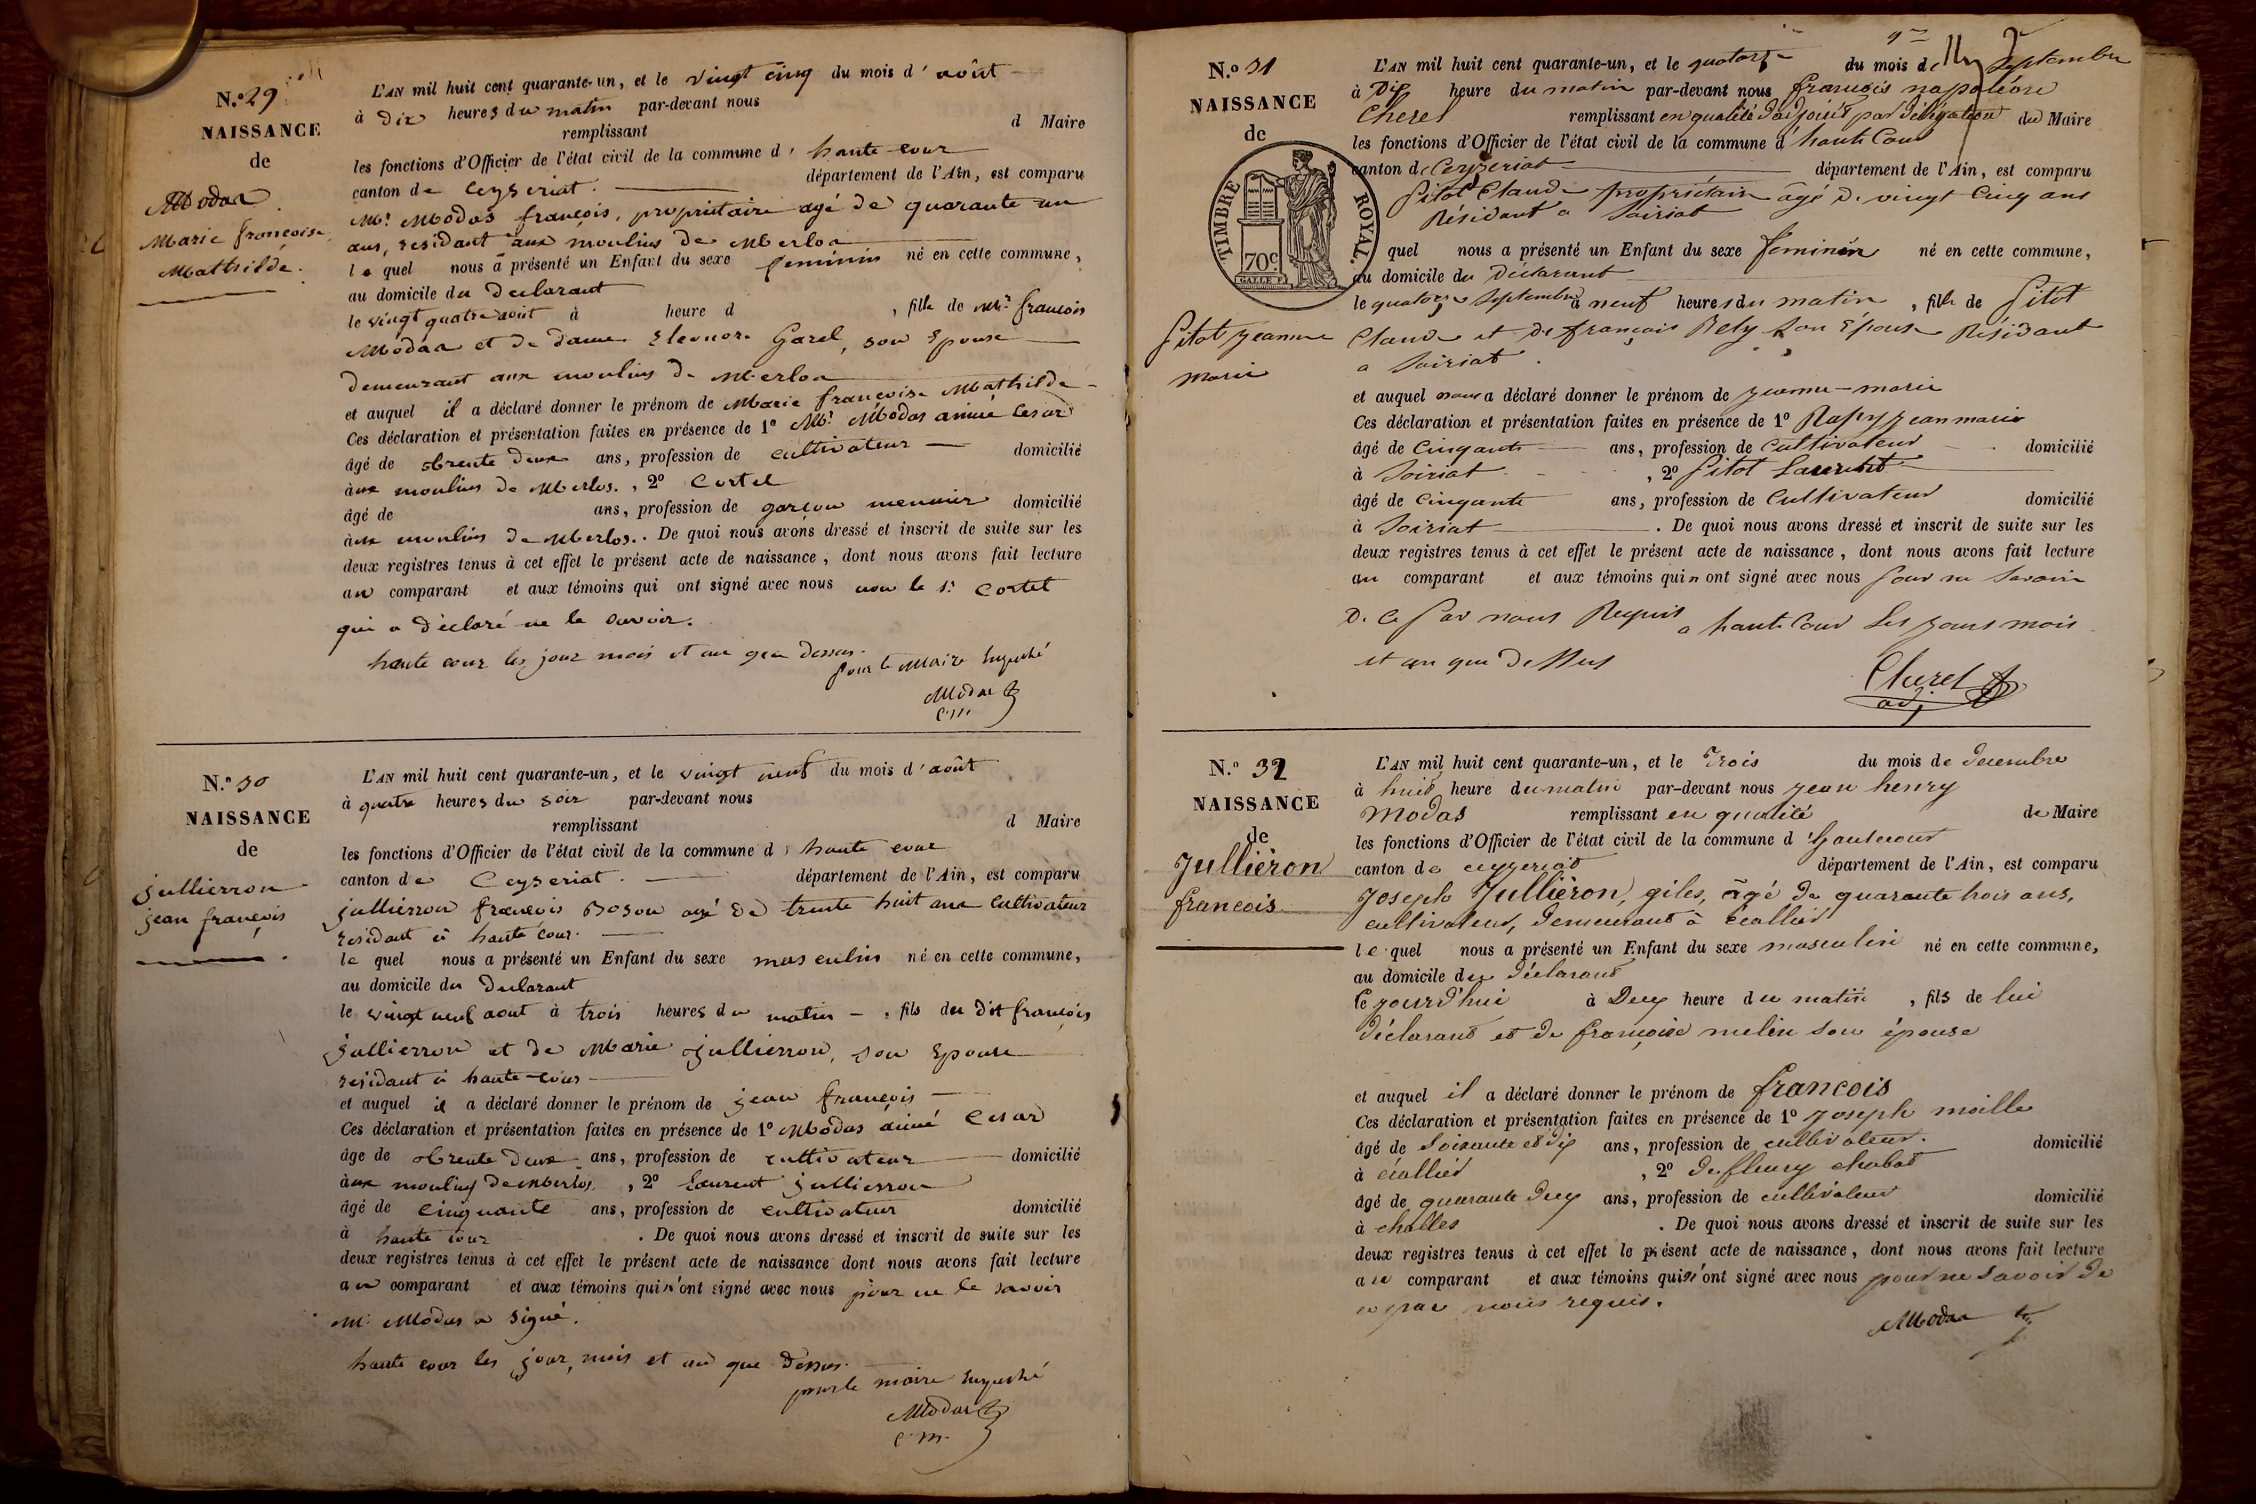 N.o 29
NAISSANCE
de
Modas
Marie françoise
Mathilde.
L'AN mil huit cent quarante-un, et le vingt cinq du mois d'août
à dix heures du matin par-devant nous
remplissant d Maire
les fonctions d'Officier de l'état civil de la commune d' haute cour
canton de Ceyseriat. département de l'Ain, est comparu
Mr. Modas françois, propriétaire agé de quarante un
ans, résidant aux moulins de Merlos
le quel nous a présenté un Enfant du sexe feminin né en cette commune,
au domicile du declarant
le vingt quatre aout à heure d , fille de Mr. françois
Modas et de dame Eleonore Garel, son Epouse
demeurant aux moulins de Merlos
et auquel il a déclaré donner le prénom de Marie françoise Mathilde
Ces déclaration et présentation faites en présence de 1o Mr. Modas aimé Cesar
âgé de trente deux ans, profession de cultivateur domicilié
aux moulins de Merlos. , 2o Cortel
âgé de ans, profession de garcon meunier domicilié
aux moulins de Merlos. . De quoi nous avons dressé et inscrit de suite sur les
deux registres tenus à cet effet le présent acte de naissance, dont nous avons fait lecture
au comparant et aux témoins qui ont signé avec nous non le sr. Cortel
qui a déclaré ne le savoir.
haute cour les jour mois et an que dessus.
pour le Maire Empeché
Modas
c.m.
N.o 30
NAISSANCE
de
jullierron
jean françois
L'AN mil huit cent quarante-un, et le vingt neuf du mois d'août
à quatre heures du soir par-devant nous
remplissant d Maire
les fonctions d'Officier de l'état civil de la commune d' haute cour
canton de Ceyseriat. département de l'Ain, est comparu
jullierron françois Boson agé de trente huit ans Cultivateur
residant à haute cour.
le quel nous a présenté un Enfant du sexe masculin né en cette commune,
au domicile du declarant
le vingt neuf aout à trois heures du matin , fils du dit françois
jullierron et de Marie jullierron, son Epouse
residant à haute-cour
et auquel il a déclaré donner le prénom de jean françois
Ces déclaration et présentation faites en présence de 1o Modas aimé Cesar
âge de trente deux ans, profession de cultivateur domicilié
aux moulins de Merlos , 2o Laurent jullierron
âgé de cinquante ans, profession de cultivateur domicilié
à haute cour . De quoi nous avons dressé et inscrit de suite sur les
deux registres tenus à cet effet le présent acte de naissance dont nous avons fait lecture
au comparant et aux témoins qui n'ont signé avec nous pour ne le savoir
Mr. Modas a signé.
haute cour les jour, mois et an que dessus.
pour le maire Empeché
Modas
c.m.
N.o 31
NAISSANCE
de
TIMBRE ROYAL.
70c
Pitot jeanne
marie
L'AN mil huit cent quarante-un, et le quatorze du mois de Septembre
à Dix heure du matin par-devant nous francois napoléon
Cherel remplissant en qualité d'adjoint par délégation du Maire
les fonctions d'Officier de l'état civil de la commune d haute Cour
canton de Ceyzeriat département de l'Ain, est comparu
Pitot Claude propriétaire âgé de vingt Cinq ans
Résidant a Soiriat
quel nous a présenté un Enfant du sexe feminin né en cette commune,
au domicile du Déclarant
le quatorze Septembre à neuf heures du matin , fille de Pitot
Claude et de françois Rely son Épouse Résidant
a Soiriat.
et auquel nous a déclaré donner le prénom de jeanne-marie
Ces déclaration et présentation faites en présence de 1o Rapy jean marie
âgé de Cinqante ans, profession de Cultivateur domicilié
à Soiriat , 2o Pitot Laurent
âgé de Cinqante ans, profession de Cultivateur domicilié
à Soiriat . De quoi nous avons dressé et inscrit de suite sur les
deux registres tenus à cet effet le présent acte de naissance, dont nous avons fait lecture
au comparant et aux témoins qui n ont signé avec nous pour ne Savoir
De Ce par nous Requis a haute Cour Les jours mois
et an que dessus
Cherel
adj
N.o 32
NAISSANCE
de
Julliéron
francois
L'AN mil huit cent quarante-un, et le Trois du mois de decembre
à huit heure du matin par-devant nous jean henry
Modas remplissant en qualité de Maire
les fonctions d'Officier de l'état civil de la commune d'hautecourt
canton de ceyzeriat département de l'Ain, est comparu
Joseph Julliéron, giles, âgé de quarante trois ans,
cultivateur, demeurant à
le quel nous a présenté un Enfant du sexe masculin né en cette commune,
au domicile du déclarant
le jourd'hui à Deux heure du matin , fils de lui
déclarant et de françoise melin son épouse
et auquel il a déclaré donner le prénom de francois
Ces déclaration et présentation faites en présence de 1o Joseph moille
âgé de soixante et dix ans, profession de cultivateur. domicilié
à , 2o de fleury chabot
âgé de quarante deux ans, profession de cultivateur domicilié
à challes . De quoi nous avons dressé et inscrit de suite sur les
deux registres tenus à cet effet le présent acte de naissance, dont nous avons fait lecture
au comparant et aux témoins qui n'ont signé avec nous pour ne savoir de
ce par nous requis.
Modas